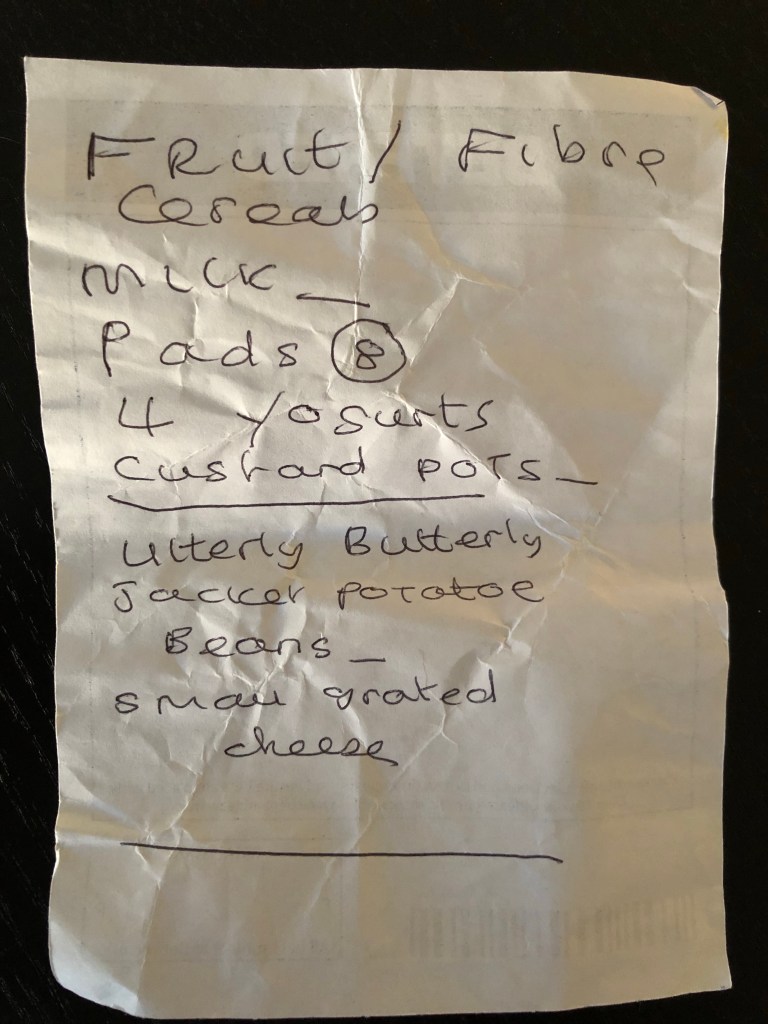 Fruit/ Fibre
Cereals
Milk _
Pads 8
4 Yogurts
Custard Pots _
Utterly Butterly
Jacket Potatoe
Beans _
small grated
cheese